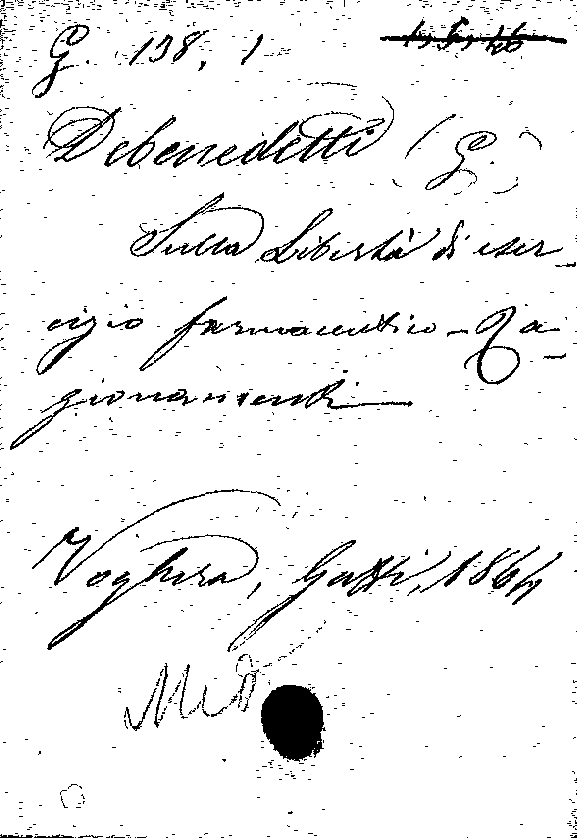 G. 138, 1
Debenedetti (G.)
Sulla Libertà di eser-
cizio farmaceutico - Ra-
gionamenti
Voghera, Gatti, 1864
Med